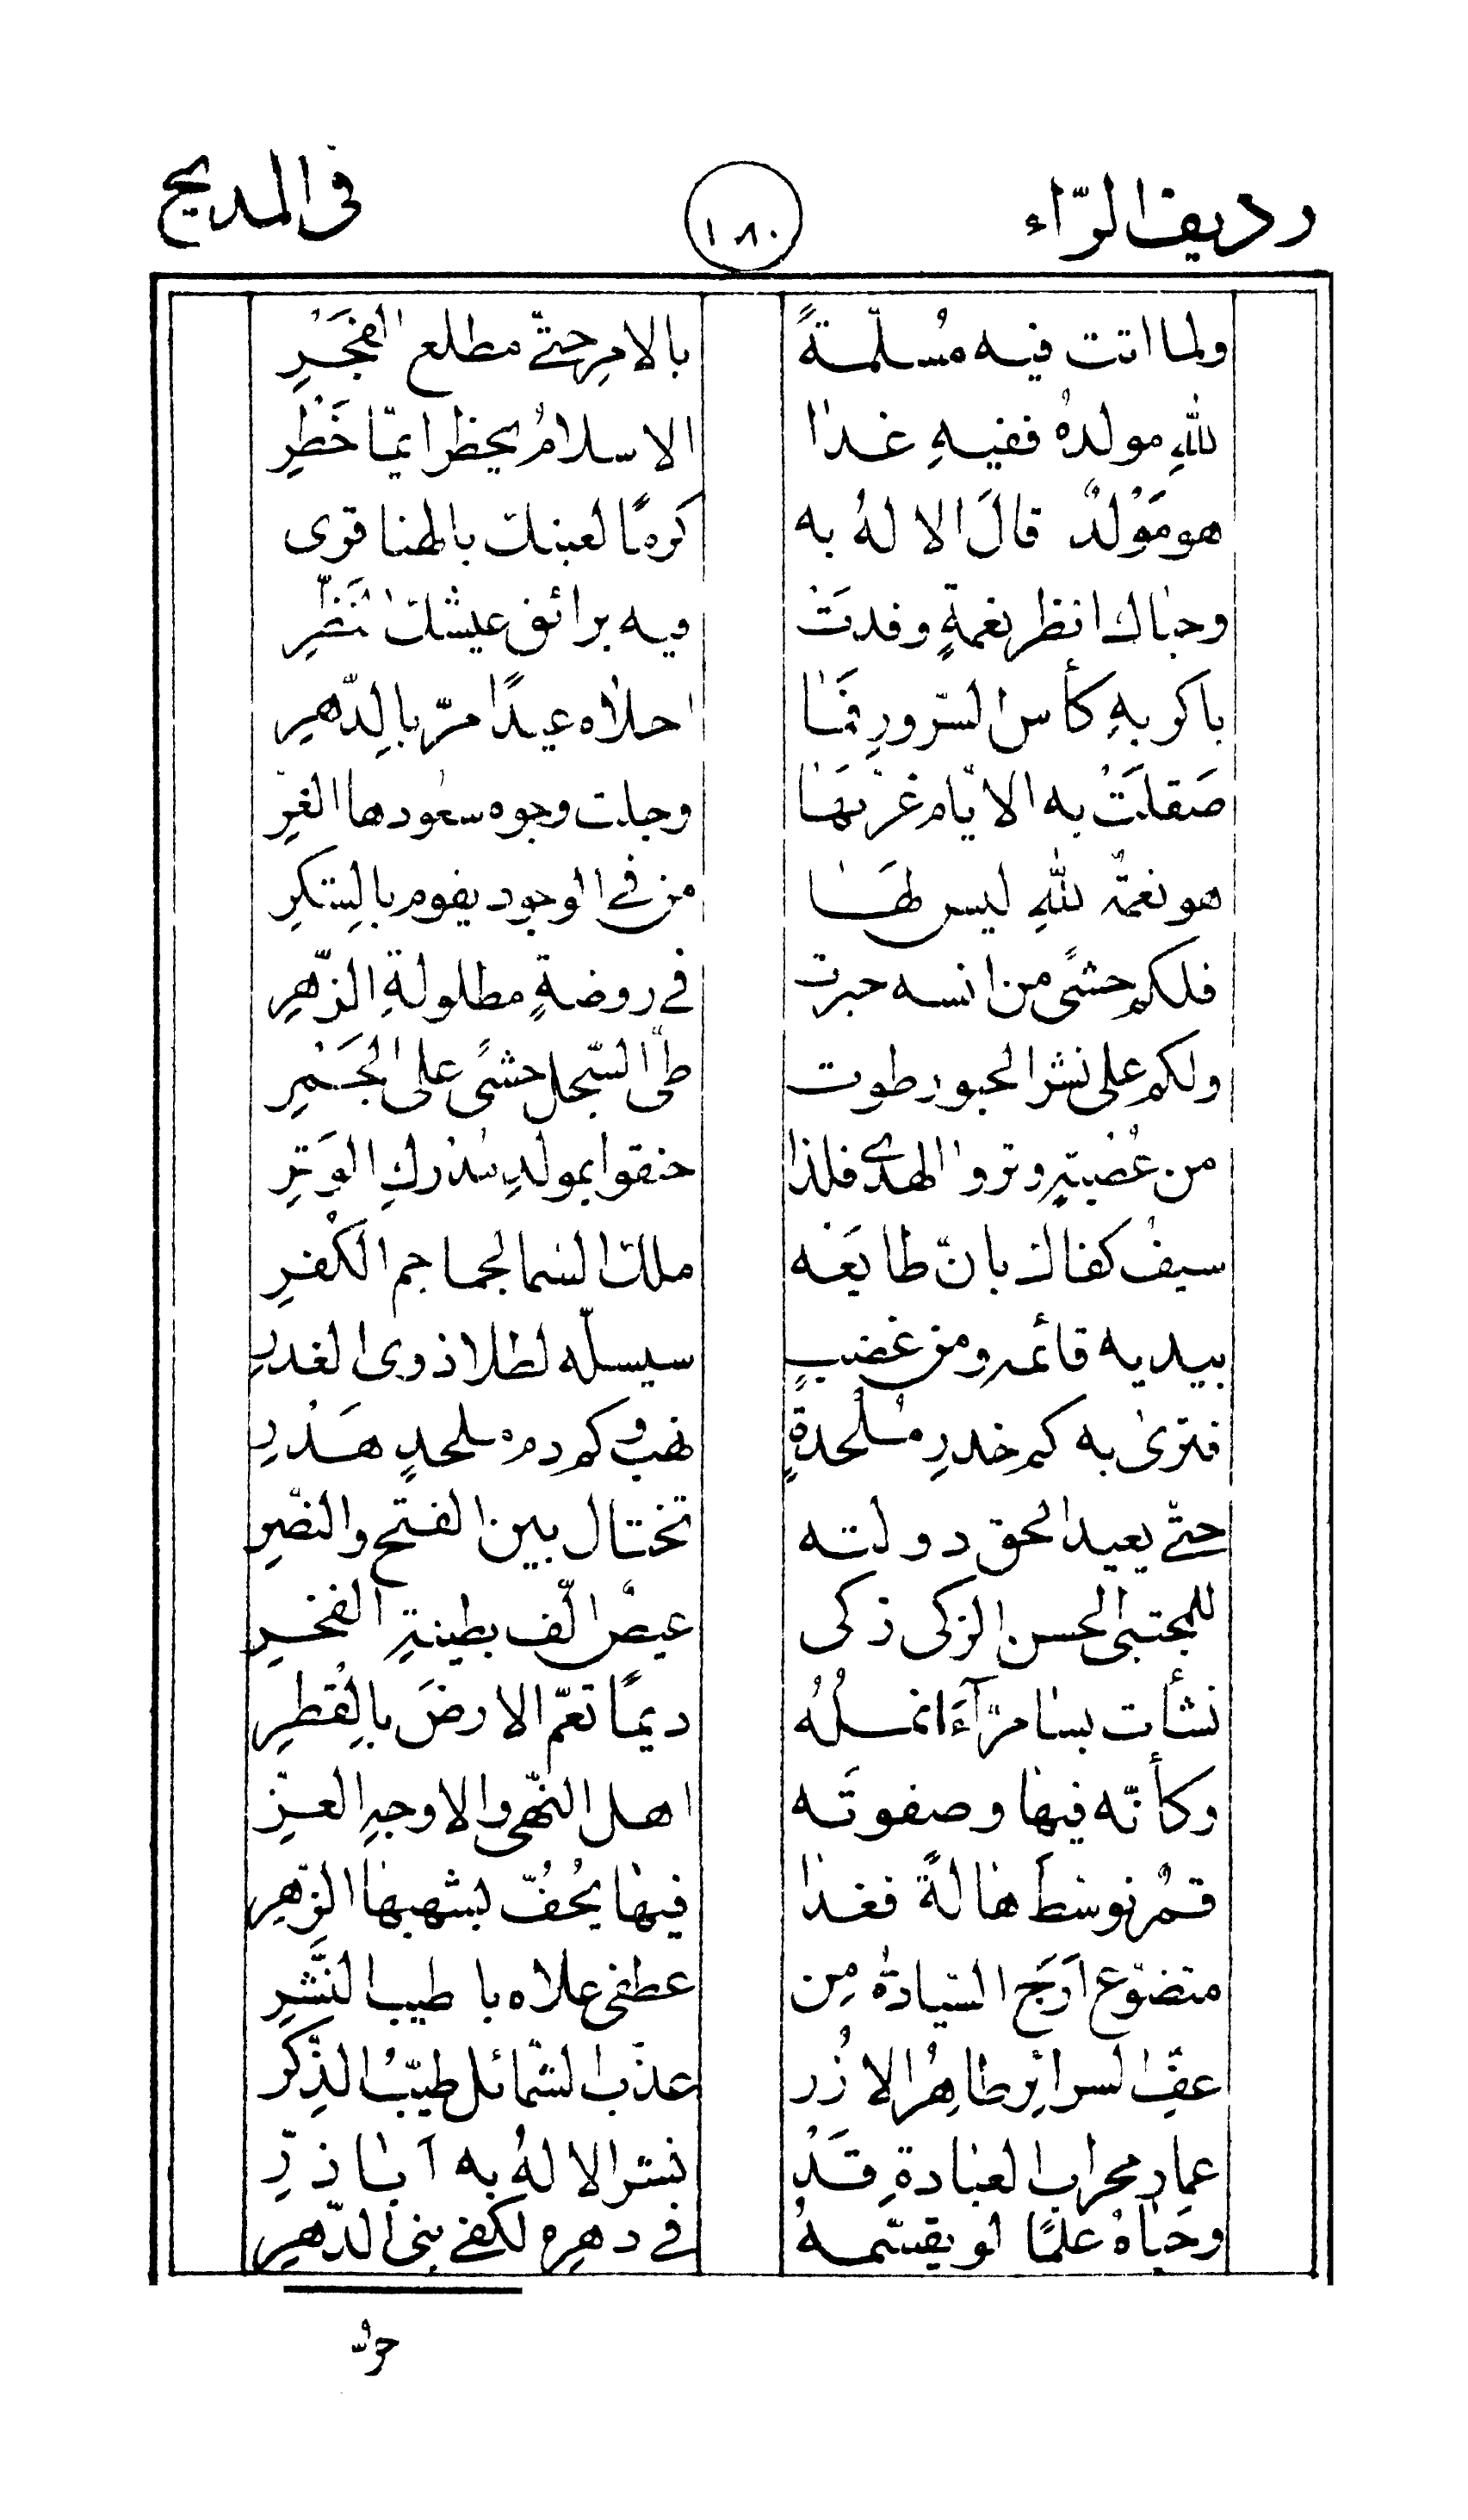 رديف الرّاء ١٨٠ في المديح
ولما اتت فيه مُسلّمةً بالامرِ حتّى مطلع الفجَرِ
للهِ مولدهُ ففيهِ غدا الاسلامُ يخطر ايمّا خَطْرِ
هو مَوْلدٌ قالَ الالهُ به كرمًا لعينك بالهنا قرى
وحباك انظر نعمةٍ وفدتْ فيه برائق عيشك النَضْرِ
باكر بهِ كأس السّرورِ فمَا احلاه عيدًا مرّ بالدّهرِ
صَقلَتْ به الايّام غرّتهَا وجلت وجوه سعودها الغرِّ
هو نعمةٌ للهِ ليس لهَا من في الوجود يقوم بالشكرِ
فلكم حشىً من انسه حبرت في روضةٍ مطلولةِ الزّهرِ
ولكم على نشر الحبور طوت طىّ السّجل حشىً على الجَمْرِ
من عُصْبةٍ وتروا الهدى فلذا حنقوا بمولدِ مُدْركِ الوَترِ
سيفٌ كفاك بانّ طابعَه ملك السما لجماجم الكُفرِ
بيديه قائمه ومن غضبٍ سيسلّه لطلا ذوى الغدرِ
فترى به كم خدرِ مُلْحدةٍ نهب وكم دم ملحدٍ هَدْرِ
حتّى يعيد الحق دولته تختال بين الفتح والنصْرِ
للمجتبى الحسن الزكى زكى عيصٌ الّف بطينةِ الفخرِ
نشأت بسامرّآءَ انملُهُ ديمًا تعمّ الارضَ بالقُطرِ
وكأنّه فيها وصفوتَه اهل النّهى والاوجهِ الغرِّ
قمرٌ توسّط هالةً فغدا فيها يُحُفّ بشهبها الزّهرِ
متضوّع اَرَج السّيادةُ مِن عطفى علاه باطيب النَّشرِ
عفّ السرائر طاهِرُ الازُر عذب الشمائل طيّبُ الذِّكر
عمادِ محراب العبادةِ قَدْ نشر الالهُ به ابا ذرِّ
وحَباهُ علمًا لو يقسّمهُ في دهرِه لكفى بنى الدّهرِ